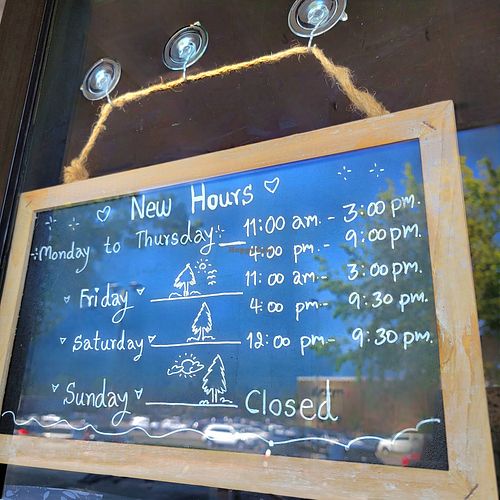 New Hours
Monday to Thursday 11:00 am. - 3:00 pm.
4:00 pm. - 9:00 pm.
Friday 11:00 am. - 3:00 pm.
4:00 pm. - 9:30 pm.
Saturday 12:00 pm. - 9:30 pm.
Sunday Closed